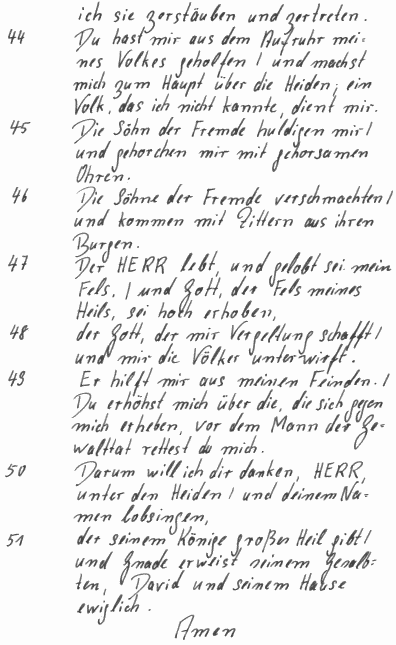 ich sie zerstäuben und zertreten.
44 Du hast mir aus dem Aufruhr mei-
nes Volkes geholfen / und machst
mich zum Haupt über die Heiden; ein
Volk, das ich nicht kannte, dient mir.
45 Die Söhn der Fremde huldigen mir /
und gehorchen mir mit gehorsamen
Ohren.
46 Die Söhne der Fremde verschmachten /
und kommen mit Zittern aus ihren
Burgen.
47 Der HERR lebt, und gelobt sei mein
Fels, / und Gott, der Fels meines
Heils, sei hoch erhoben,
48 der Gott, der mir Vergeltung schafft /
und mir die Völker unterwirft.
49 Er hilft mir aus meinen Feinden. /
Du erhöhst mich über die, die sich gegen
mich erheben, vor dem Mann der Ge-
walttat rettest du mich.
50 Darum will ich dir danken, HERR,
unter den Heiden / und deinem Na-
men lobsingen,
51 der seinem Könige großes Heil gibt /
und Gnade erweist seinem Gesalb-
ten, David und seinem Hause
ewiglich.
Amen